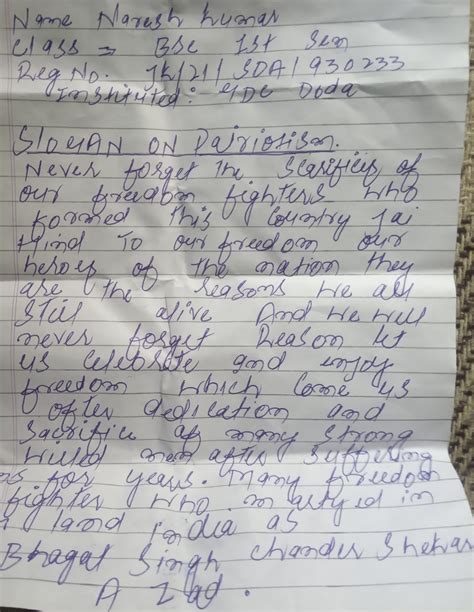 Name Naresh Kumar
Class = BSc Ist Sem
Reg No. JK/21/SDA/930233
Instituted: GDC Doda
SLOGAN ON Patriotism.
Never forget the Scarifies of
our freedom fighters who
formed this Country Jai
Hind To our freedom our
heroes of the nation they
are the reasons we all
Still alive And we will
never forget Reason let
us celebrate and enjoy
freedom which come us
after dedication and
Sacrifice of many strong
willed men after suffering
for years. Many freedom
fighter who martyed in
land India as
Bhagat Singh Chander Shekar
A Zad.